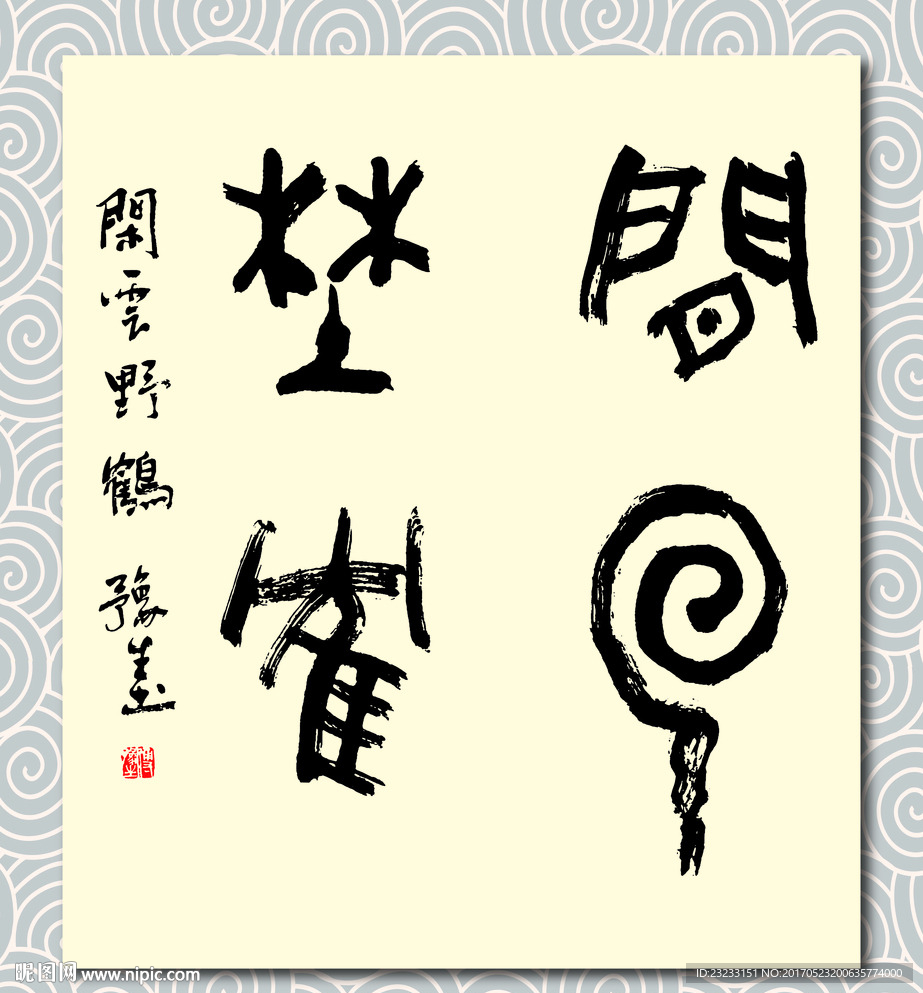 閒云
埜隺
閑雲野鶴 豫
昵图网 www.nipic.com
ID:23233151 NO:20170523200635774000